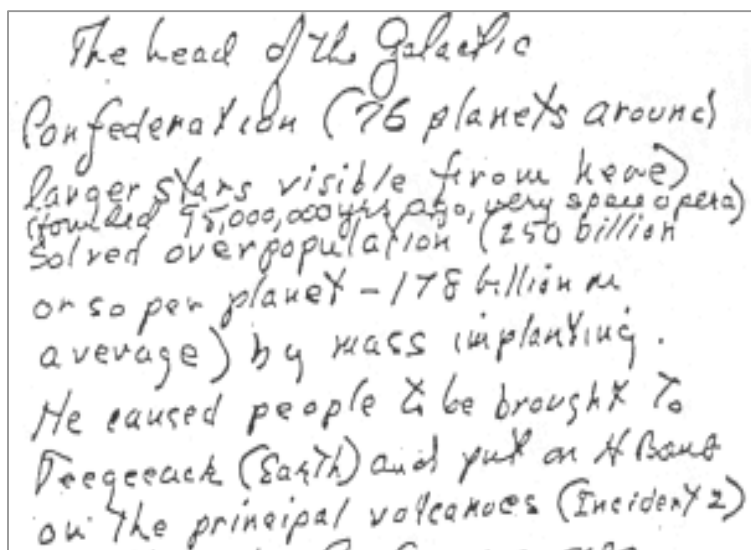 The head of the Galactic
Confederation (76 planets around
larger stars visible from here)
(founded 95,000,000 yrs ago, very space opera)
solved overpopulation (250 billion
or so per planet - 178 billion on
average) by mass implanting.
He caused people to be brought to
Teegeeack (Earth) and put an H Bomb
on the principal volcanoes (Incident 2)